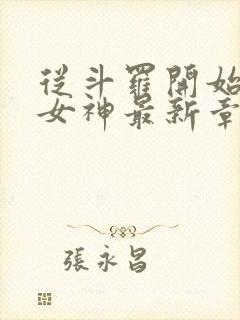 從斗羅開始
女神最新章
張永昌